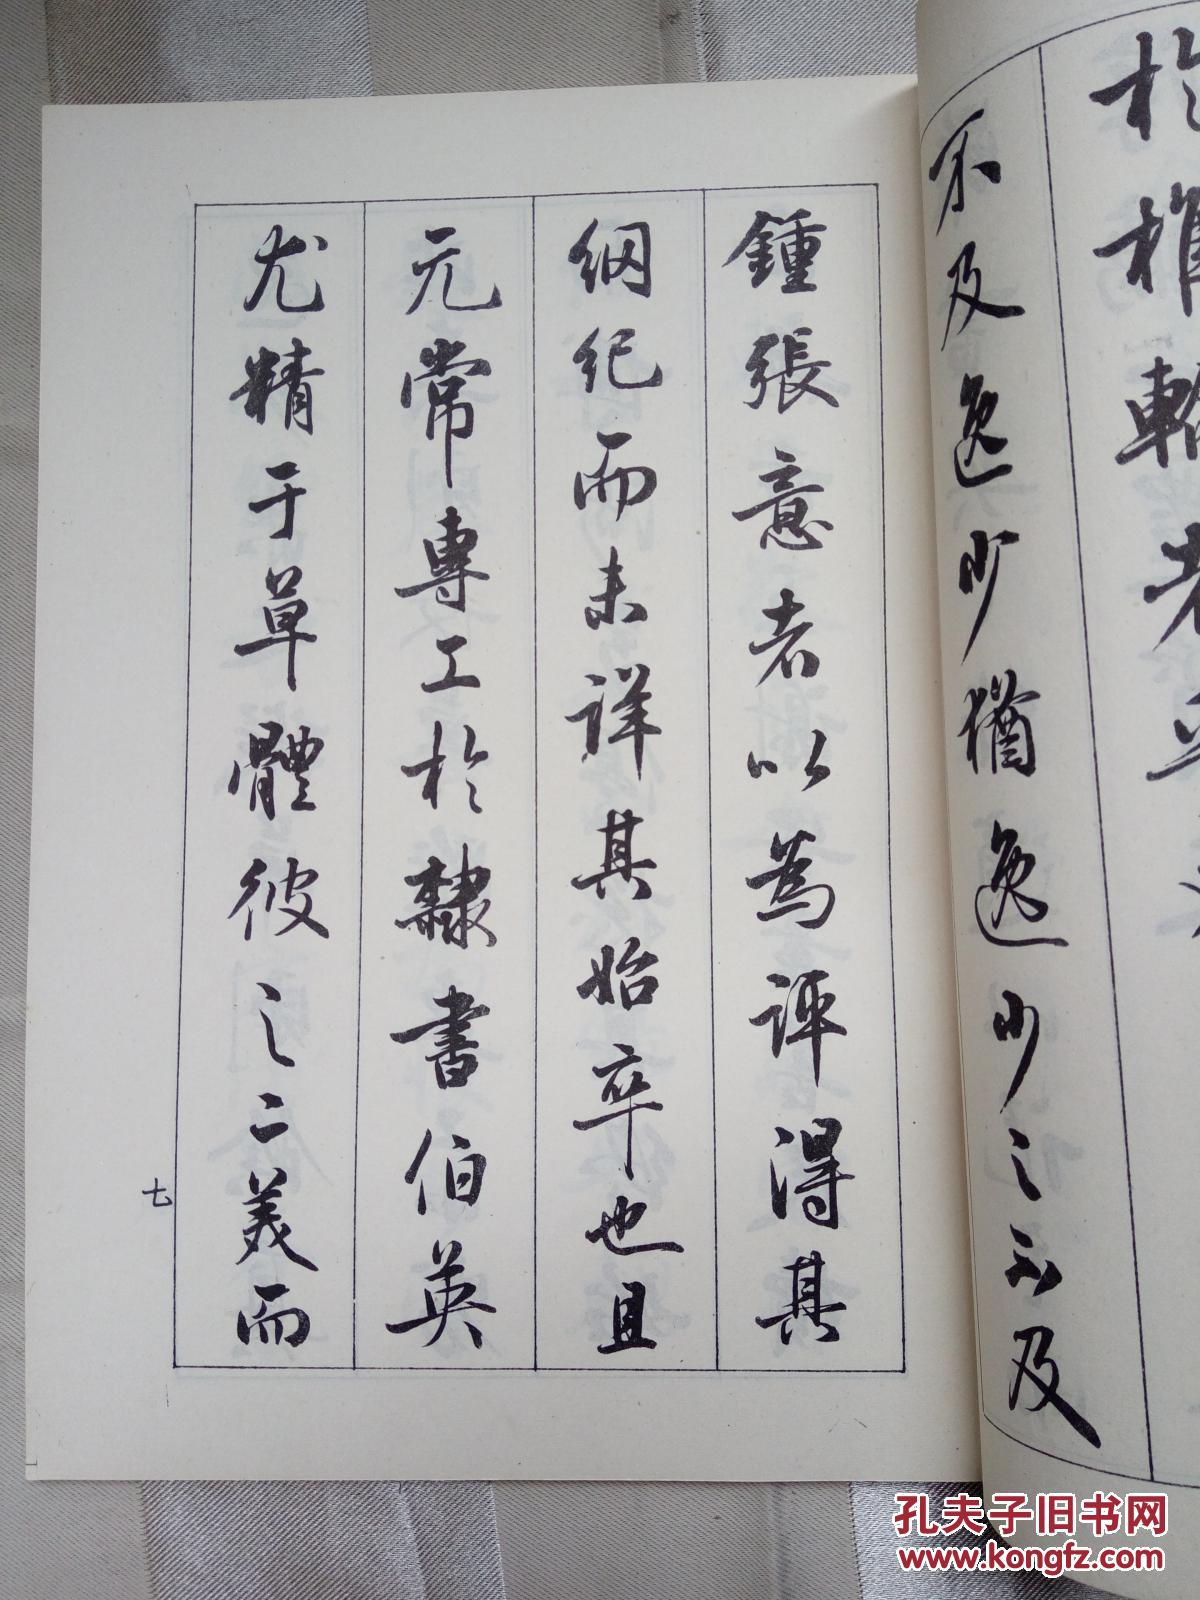 於椎輪者乎
不及逸少猶逸少之不及
鍾張意者以為評得其
綱紀而未詳其始卒也且
元常專工於隸書伯英
尤精于草體彼之二美而
七
孔夫子旧书网
www.kongfz.com